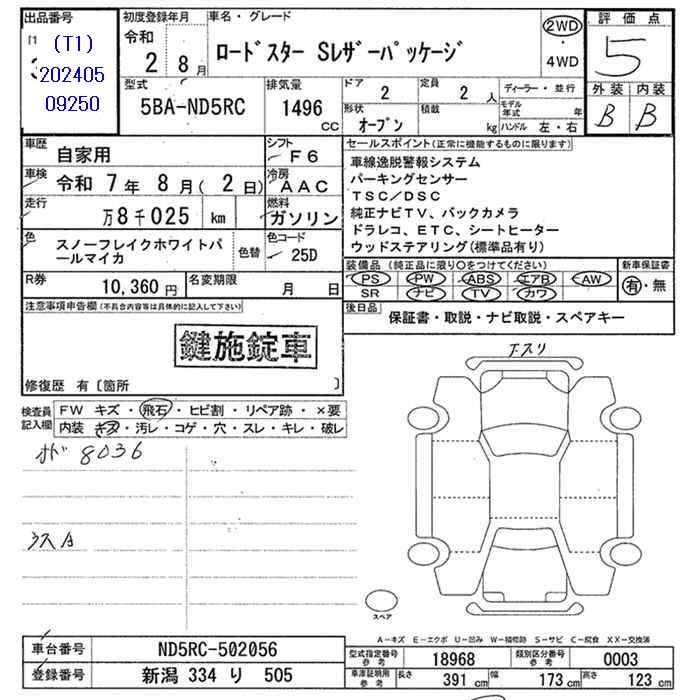 出品番号
(T1)
202405
09250
初度登録年月
令和
2 8月
車名・グレード
ロードスター Sレザーパッケージ
2WD
・
4WD
評価点
5
型式
5BA-ND5RC
排気量
1496
cc
ドア
2
定員
2 人
形状
オープン
積載
kg
ディーラー・並行
モデル年式 年
ハンドル 左・右
外装 内装
B B
車歴
自家用
シフト
F6
車検
令和 7年 8月( 2日)
冷房
AAC
走行
万8千025 km
燃料
ガソリン
色
スノーフレイクホワイトパ
ールマイカ
色替
色コード
25D
R券
10,360円
名変期限
月 日
セールスポイント(正常に機能するものに限ります)
車線逸脱警報システム
パーキングセンサー
TSC/DSC
純正ナビTV、バックカメラ
ドラレコ、ETC、シートヒーター
ウッドステアリング(標準品有り)
装備品(純正品に限り○をつけてください)
PS PW ABS エアB AW
SR ナビ TV カワ
新車保証書
有・無
後日品
保証書・取説・ナビ取説・スペアキー
注意事項申告欄(不具合内容等は具体的に記入して下さい)
鍵施錠車
修復歴 有〔箇所 〕
検査員
記入欄
FW キズ・飛石・ヒビ割・リペア跡・×要
内装 キズ・汚レ・コゲ・穴・スレ・キレ・破レ
8036
下スリ
スペア
A-キズ E-エクボ U-凹み W-補修跡 S-サビ C-腐食 XX-交換済
車台番号
ND5RC-502056
登録番号
新潟 334 り 505
型式指定番号
参考
18968
類別区分番号
参考
0003
車庫証明用
参考
長さ
391 cm
幅
173 cm
高さ
123 cm